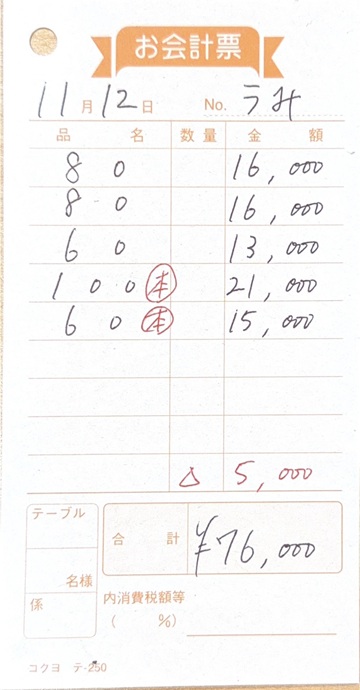 お会計票
11月12日 No. うみ
品名 数量 金額
80 16,000
80 16,000
60 13,000
100 本 21,000
60 本 15,000
△ 5,000
テーブル
名様
係
合計 ¥76,000
内消費税額等
( %)
コクヨ テ-250